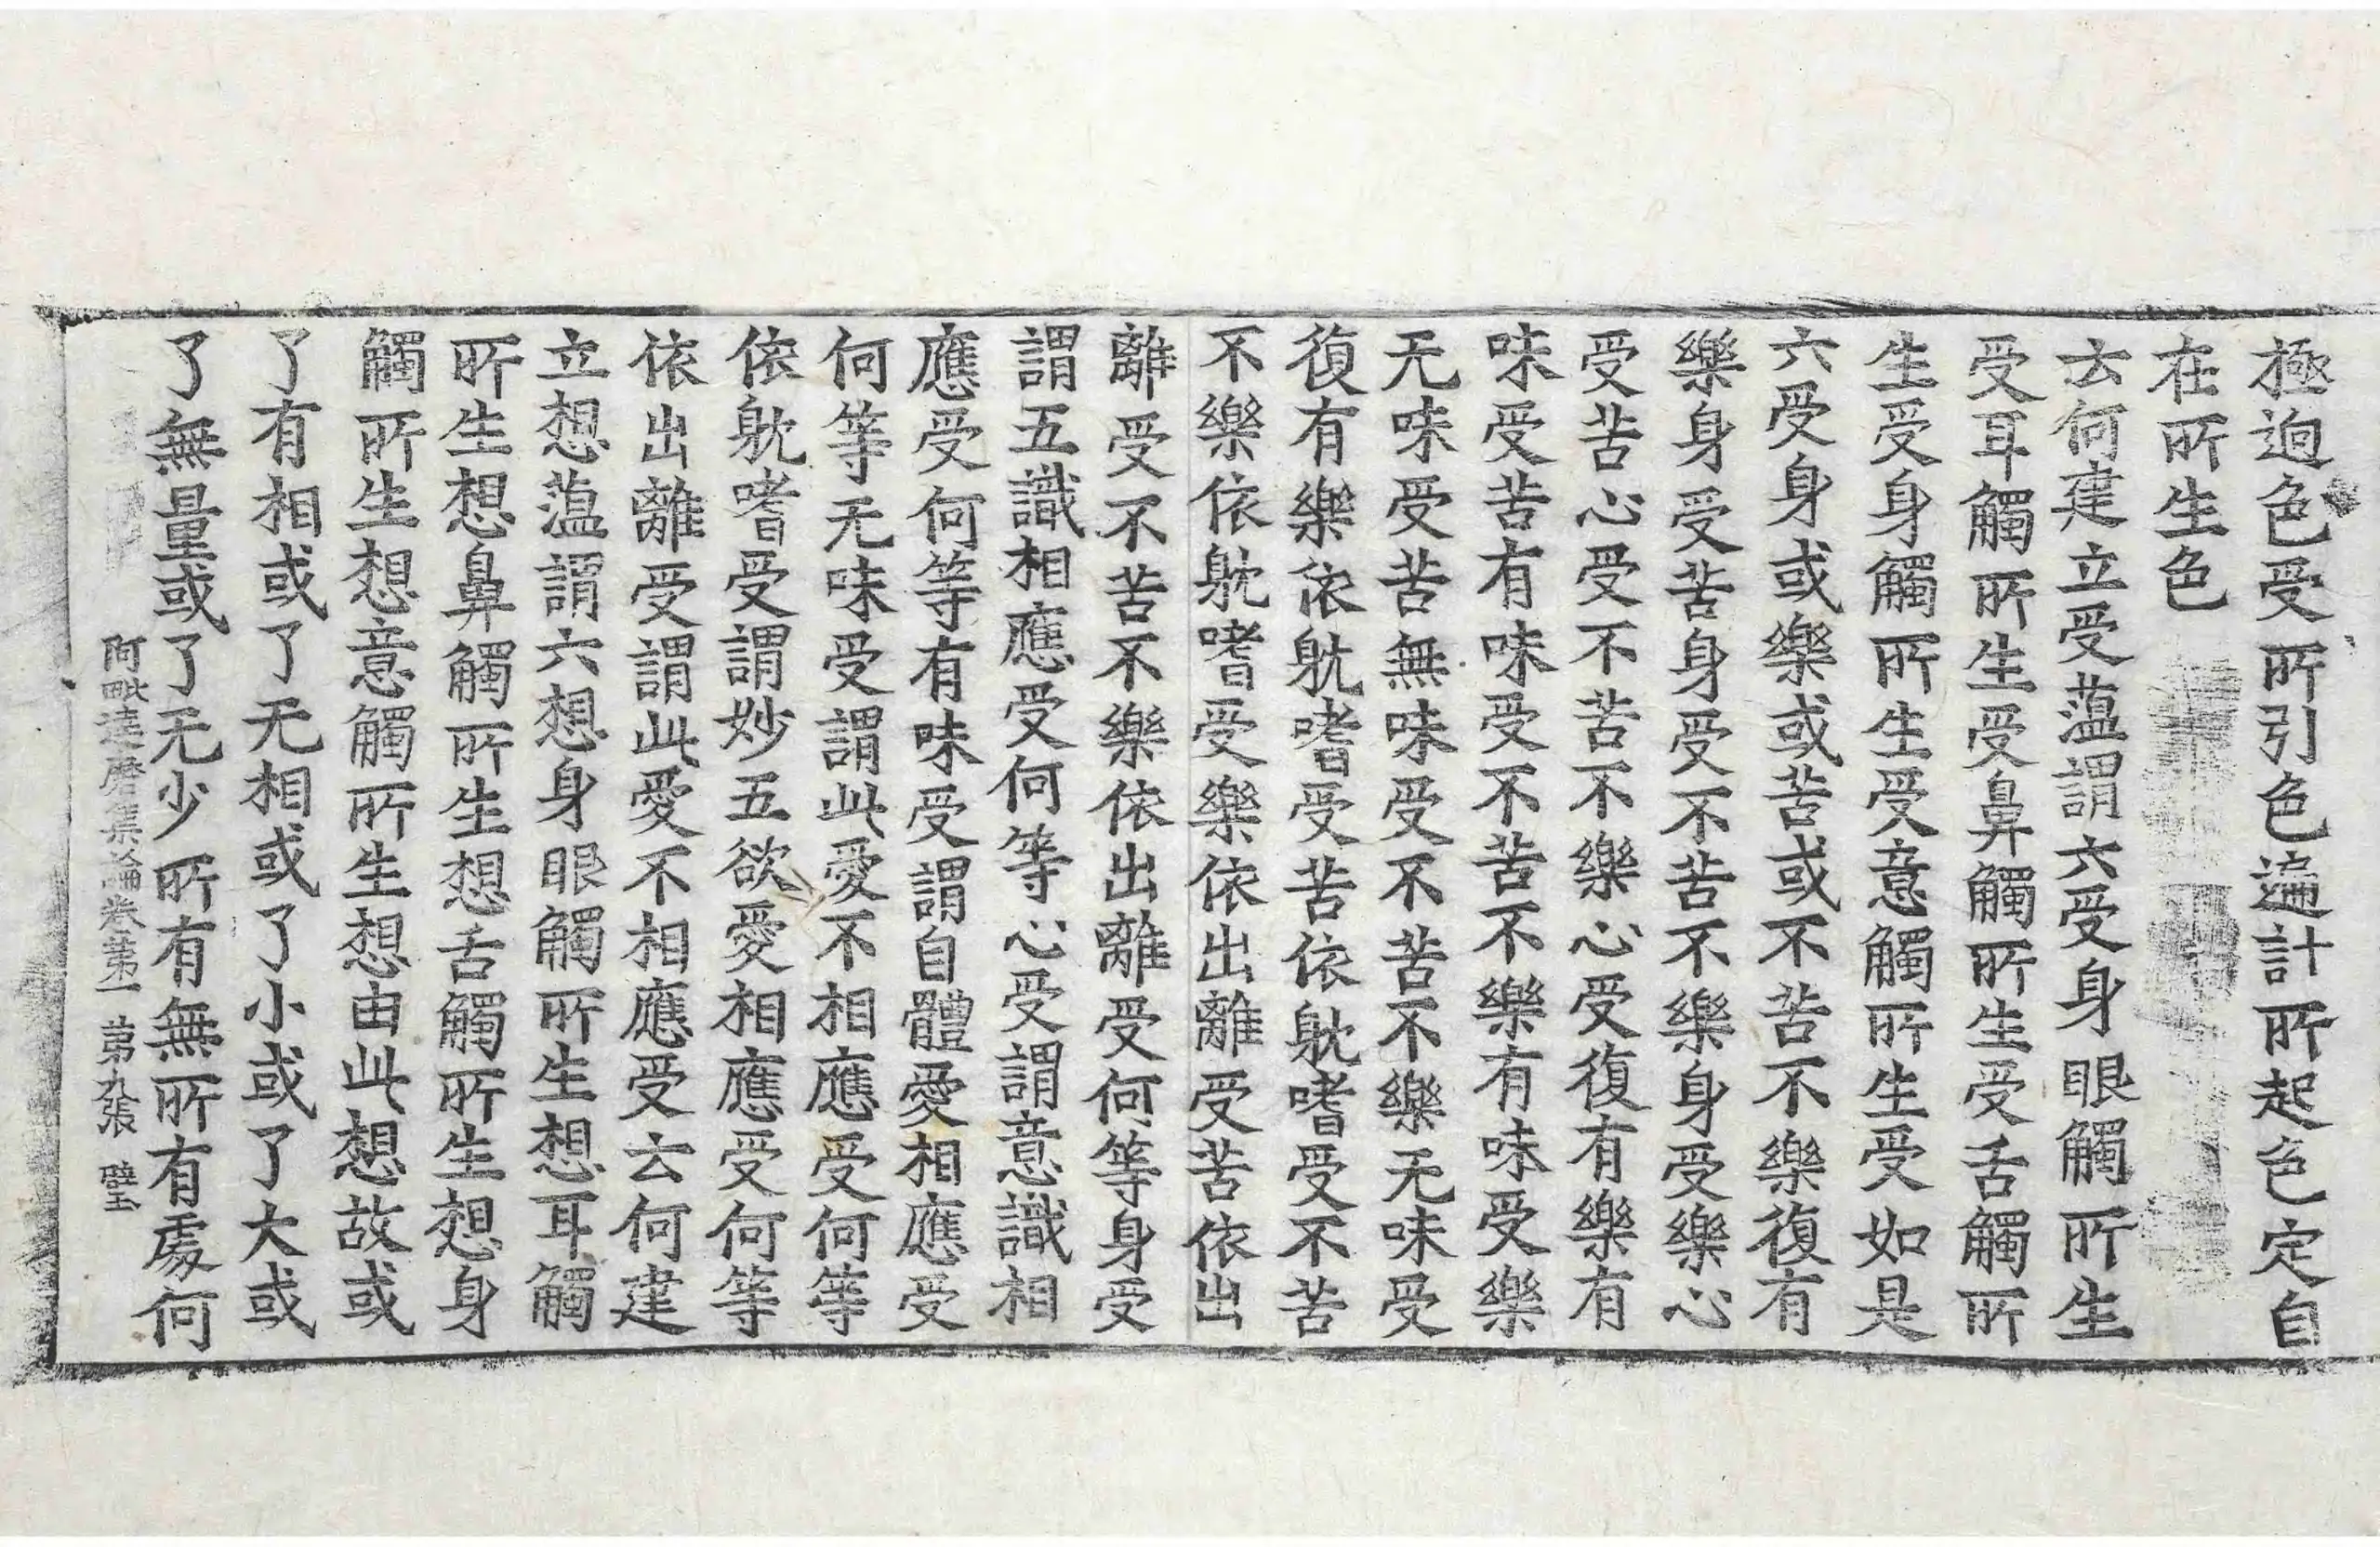 極逈色受所引色遍計所起色定自
在所生色
云何建立受薀謂六受身眼觸所生
受耳觸所生受鼻觸所生受舌觸所
生受身觸所生受意觸所生受如是
六受身或樂或苦或不苦不樂復有
樂身受苦身受不苦不樂身受樂心
受苦心受不苦不樂心受復有樂有
味受苦有味受不苦不樂有味受樂
无味受苦無味受不苦不樂无味受
復有樂依躭嗜受苦依躭嗜受不苦
不樂依躭嗜受樂依出離受苦依出
離受不苦不樂依出離受何等身受
謂五識相應受何等心受謂意識相
應受何等有味受謂自體愛相應受
何等无味受謂此愛不相應受何等
依躭嗜受謂妙五欲愛相應受何等
依出離受謂此愛不相應受云何建
立想薀謂六想身眼觸所生想耳觸
所生想鼻觸所生想舌觸所生想身
觸所生想意觸所生想由此想故或
了有相或了无相或了小或了大或
了無量或了无少所有無所有處何
阿毗達磨集論卷第一 第九張 璧